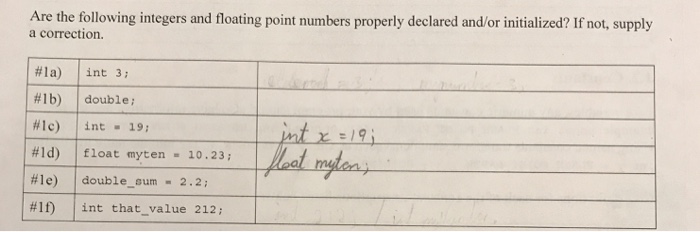 Are the following integers and floating point numbers properly declared and/or initialized? If not, supply
a correction.
#1a) int 3;
#1b) double;
#1c) int = 19; int x = 19;
#1d) float myten = 10.23; float myten;
#1e) double_sum = 2.2;
#1f) int that_value 212;